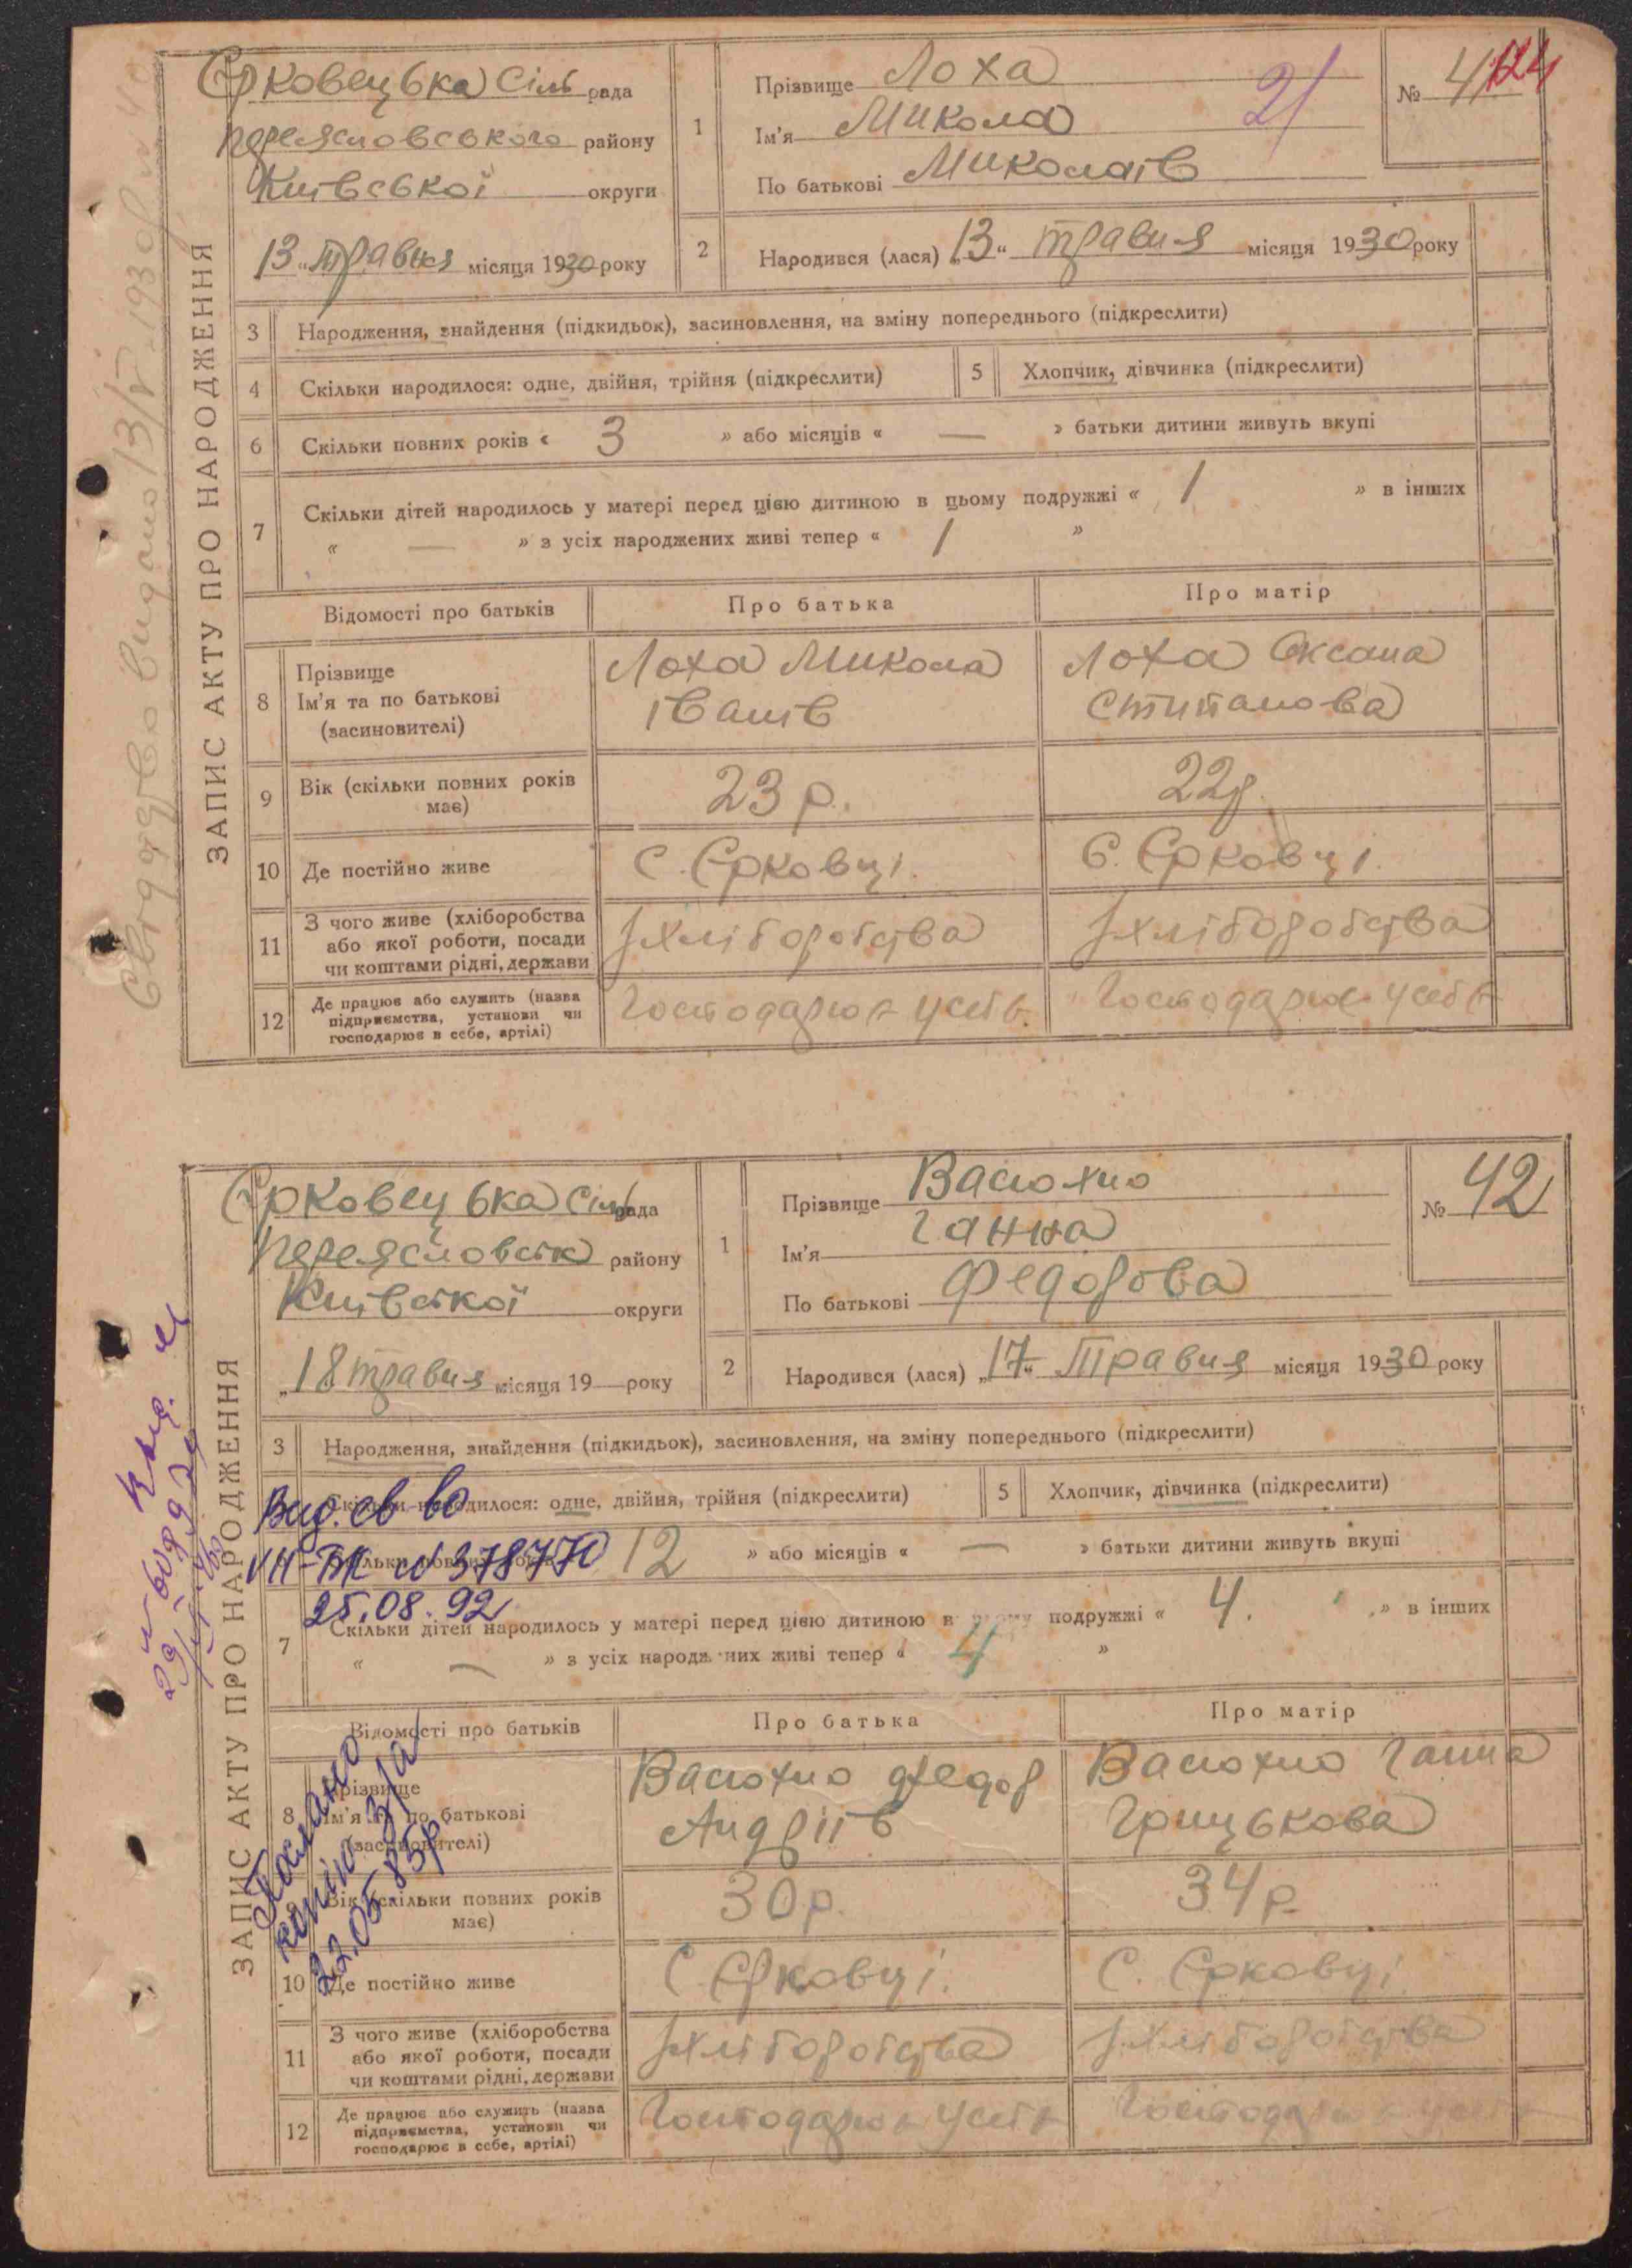 ЗАПИС АКТУ ПРО НАРОДЖЕННЯ
Свідоцтво видано 13/V-1930р
Єрковецька Сіль рада
Переясловського району
Київської округи
13 „ травня місяця 1930 року
1
Прізвище Лоха
Ім'я Микола
По батькові Миколаїв
21
№ 41
124
2
Народився (лася) „13“ травня місяця 1930 року
3 Народження, знайдення (підкидьок), засиновлення, на зміну попереднього (підкреслити)
4 Скільки народилося: одне, двійня, трійня (підкреслити)
5 Хлопчик, дівчинка (підкреслити)
6 Скільки повних років « 3 » або місяців « — » батьки дитини живуть вкупі
7 Скільки дітей народилось у матері перед цією дитиною в цьому подружжі « 1 » в інших
« — » з усіх народжених живі тепер « 1 »
Відомості про батьків Про батька Про матір
8 Прізвище
Ім'я та по батькові
(засиновителі)
Лоха Микола
Іванів
Лоха Оксана
Стипанова
9 Вік (скільки повних років
має)
23 р.
22р.
10 Де постійно живе С. Єрковці. С. Єрковці.
11 З чого живе (хліборобства
або якої роботи, посади
чи коштами рідні, держави
Зхліборобства Зхліборобства
12 Де працює або служить (назва
підприємства, установи чи
господарює в себе, артілі)
Господарює усебе Господарює усебе
ЗАПИС АКТУ ПРО НАРОДЖЕННЯ
Єрковецька Сіль рада
Переясловськ району
Київської округи
„18 травня місяця 19—року
1
Прізвище Васюхно
Ім'я Ганна
По батькові Федорова
№ 42
2
Народився (лася) „17“ Травня місяця 1930 року
3 Народження, знайдення (підкидьок), засиновлення, на зміну попереднього (підкреслити)
Скільки народилося: одне, двійня, трійня (підкреслити)
5 Хлопчик, дівчинка (підкреслити)
Вид. св во
VII-БК № 378770
25.08.92
Скільки повних років 12 » або місяців « — » батьки дитини живуть вкупі
7 Скільки дітей народилось у матері перед цією дитиною в цьому подружжі « 4. » в інших
« — » з усіх народжених живі тепер « 4 »
Відомості про батьків Про батька Про матір
8 Прізвище
Ім'я та по батькові
(засиновителі)
Васюхно Федор
Андріїв
Васюхно Ганна
Грицькова
Послано
копію
22.05.83р
9 Вік (скільки повних років
має)
30р.
34р.
10 Де постійно живе С Єрковці. С. Єрковці
11 З чого живе (хліборобства
або якої роботи, посади
чи коштами рідні, держави
Зхліборобства Зхліборобства
12 Де працює або служить (назва
підприємства, установи чи
господарює в себе, артілі)
Господарює усебе Господарює усебе